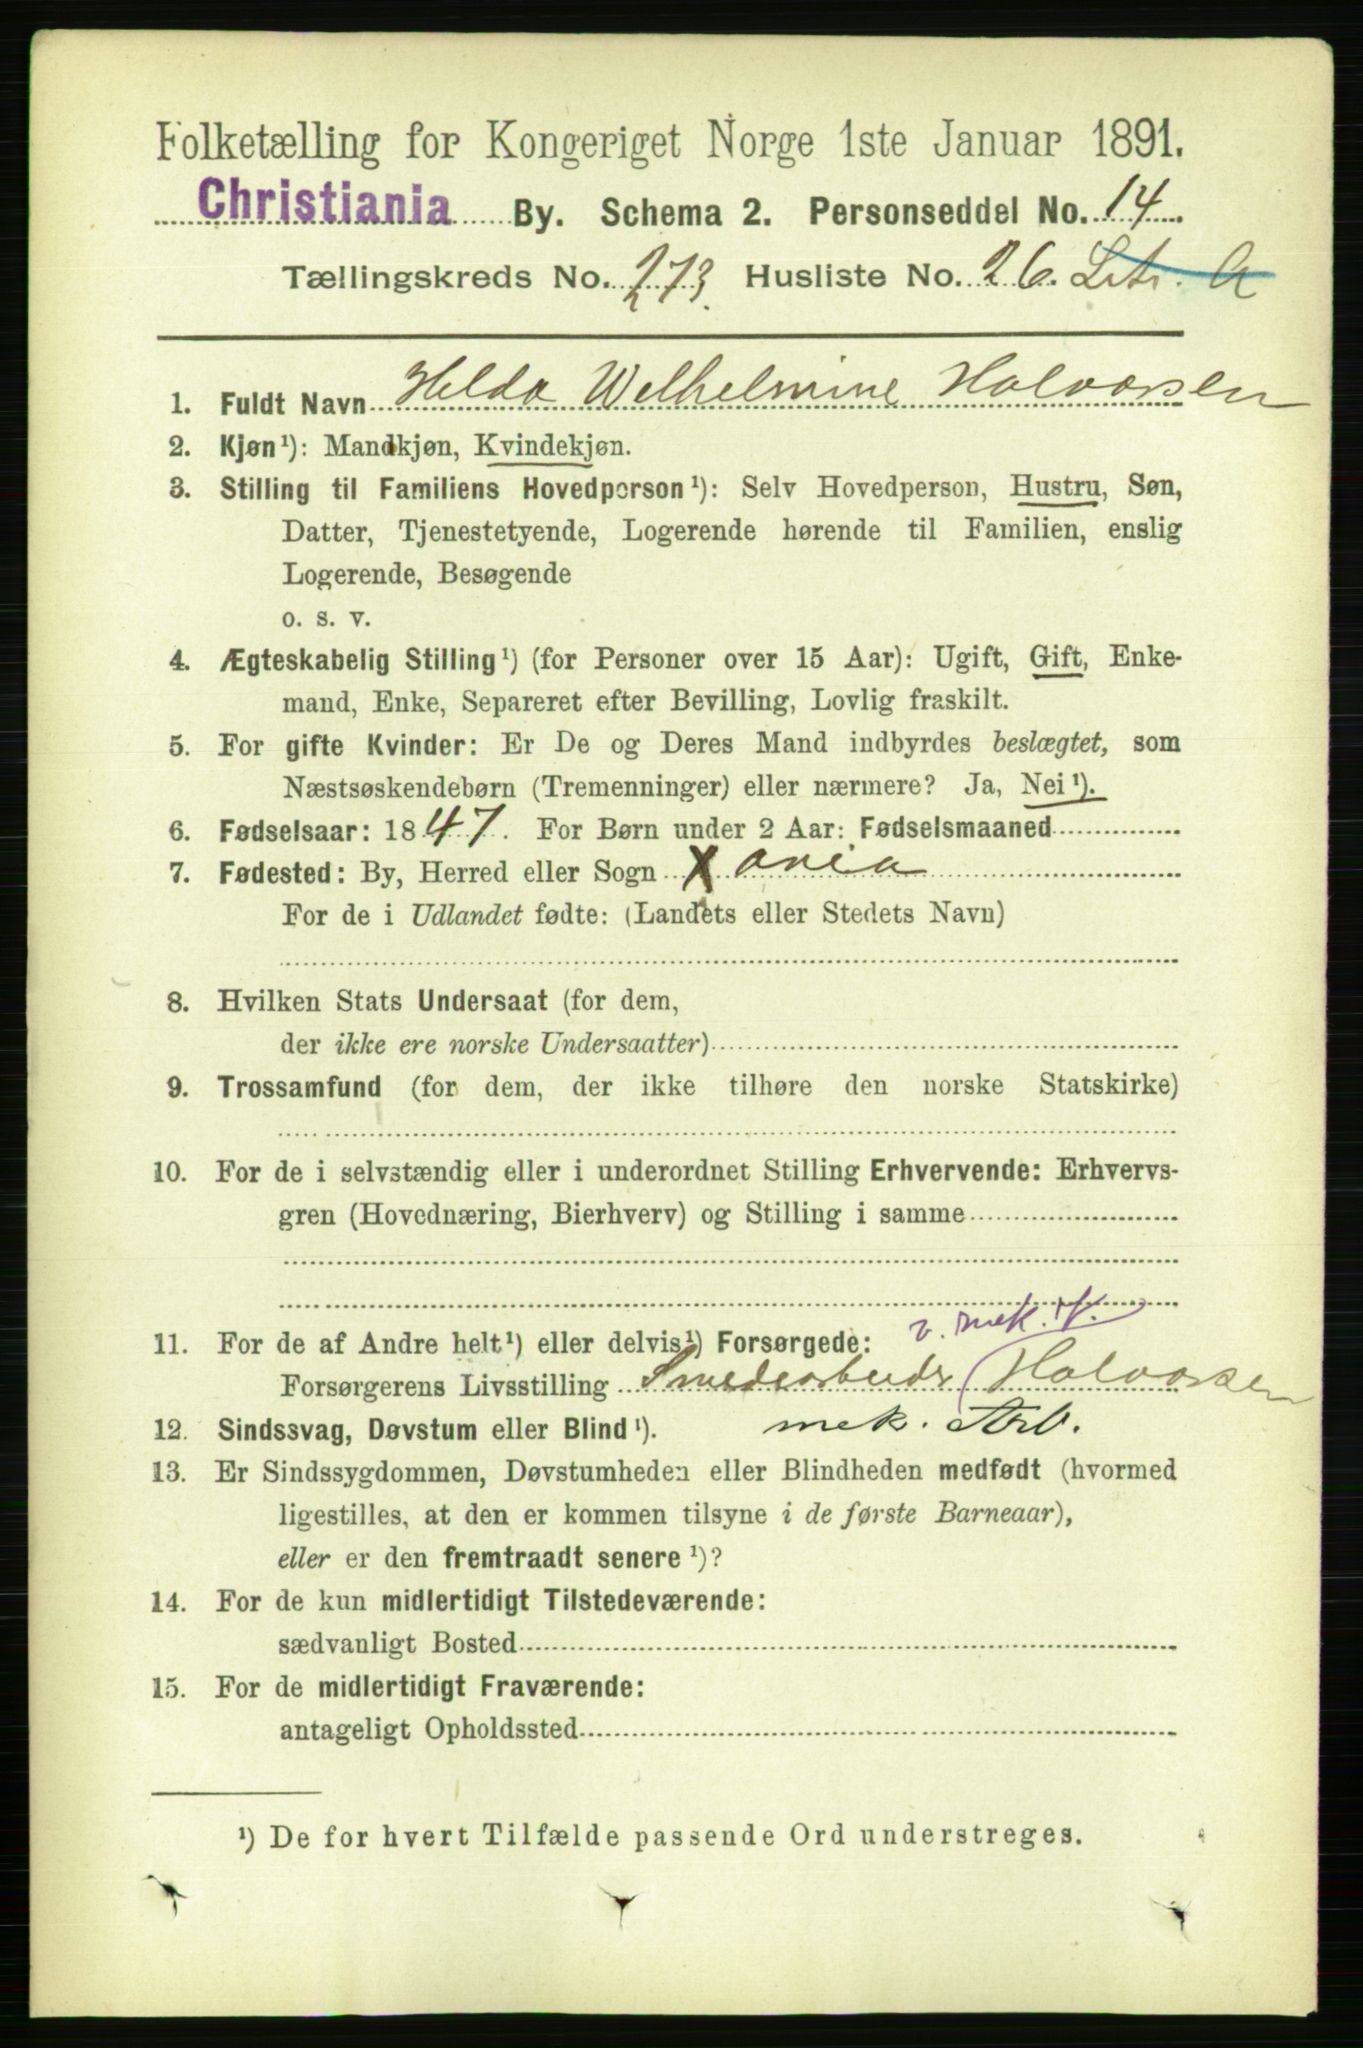 Folketælling for Kongeriget Norge 1ste Januar 1891.
Christiania By. Schema 2. Personseddel No. 14
Tællingskreds No. 273. Husliste No. 26. Litr. A
1. Fuldt Navn Helda Welhelmine Halvorsen
2. Kjøn¹): Mandkjøn, Kvindekjøn.
3. Stilling til Familiens Hovedperson¹): Selv Hovedperson, Hustru, Søn,
Datter, Tjenestetyende, Logerende hørende til Familien, enslig
Logerende, Besøgende
o. s. v.
4. Ægteskabelig Stilling¹) (for Personer over 15 Aar): Ugift, Gift, Enke-
mand, Enke, Separeret efter Bevilling, Lovlig fraskilt.
5. For gifte Kvinder: Er De og Deres Mand indbyrdes beslægtet, som
Næstsøskendebørn (Tremenninger) eller nærmere? Ja, Nei¹).
6. Fødselsaar: 1847. For Børn under 2 Aar: Fødselsmaaned
7. Fødested: By, Herred eller Sogn Xania
For de i Udlandet fødte: (Landets eller Stedets Navn)
8. Hvilken Stats Undersaat (for dem,
der ikke ere norske Undersaatter)
9. Trossamfund (for dem, der ikke tilhøre den norske Statskirke)
10. For de i selvstændig eller i underordnet Stilling Erhvervende: Erhvervs-
gren (Hovednæring, Bierhverv) og Stilling i samme
v. mek. V.
11. For de af Andre helt¹) eller delvis¹) Forsørgede:
Forsørgerens Livsstilling Smedearbeider Halvorsen
12. Sindssvag, Døvstum eller Blind¹). mek. Arb.
13. Er Sindssygdommen, Døvstumheden eller Blindheden medfødt (hvormed
ligestilles, at den er kommen tilsyne i de første Barneaar),
eller er den fremtraadt senere¹)?
14. For de kun midlertidigt Tilstedeværende:
sædvanligt Bosted
15. For de midlertidigt Fraværende:
antageligt Opholdssted
¹) De for hvert Tilfælde passende Ord understreges.